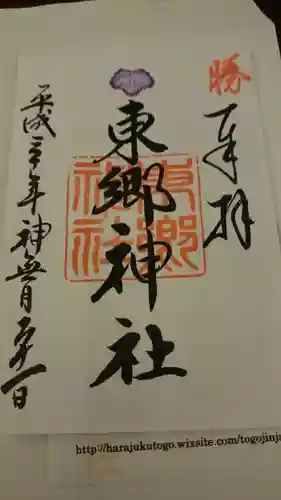 勝
奉拝
東郷神社
東郷
神社
平成三十年神無月二十一日
http://harajukutogo.wixsite.com/togojinju